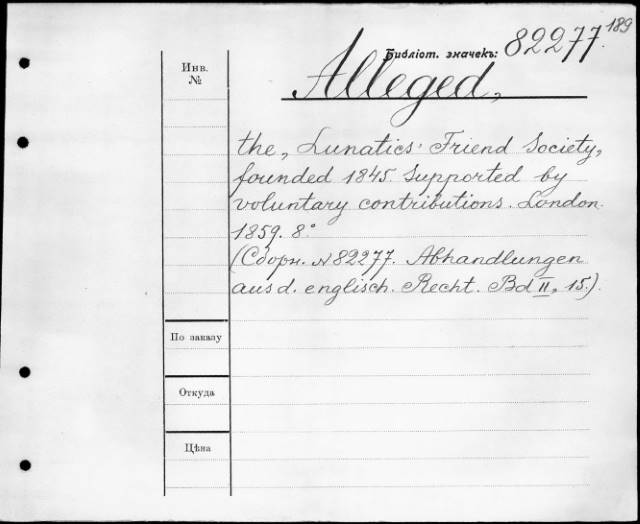 189
Библіот. значекъ: 82277.
Инв.
№
Alleged,
the, Lunatics' Friend Society,
founded 1845. Supported by
voluntary contributions. London.
1859. 8°
(Сборн. N 82277. Abhandlungen
aus d. englisch. Recht. Bd II, 15.).
По заказу
Откуда
Цѣна